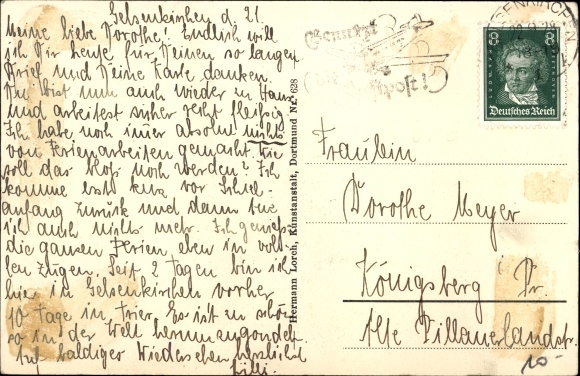 Gelsenkirchen d. 21.
Meine liebe Dorothe! Endlich will
ich Dir heute für Deinen so langen
Brief und Deine Karte danken.
Du bist nun auch wieder zu Haus
und arbeitest sicher recht fleißig.
Ich habe noch immer absolut nichts
von Ferienarbeiten gemacht. Wie
soll das bloß noch werden? Ich
komme erst kurz vor Schul-
anfang zurück und dann tue
ich auch nichts mehr. Ich genieße
die ganzen Ferien eben in vol-
len Zügen. Seit 2 Tagen bin ich
hier in Gelsenkirchen vorher
10 Tage in Trier. Es ist zu schön
so in der Welt herumzugondeln.
Auf baldiges Wiedersehen herzlichst
Lilli.
Hermann Lorch, Kunstanstalt, Dortmund Nr. 628
Benutzt
die
Luftpost!
GELSENKIRCHEN
8 8
Deutsches Reich
Fräulein
Dorothe Meyer
Königsberg Pr.
Alte Pillauerlandstr.
10-